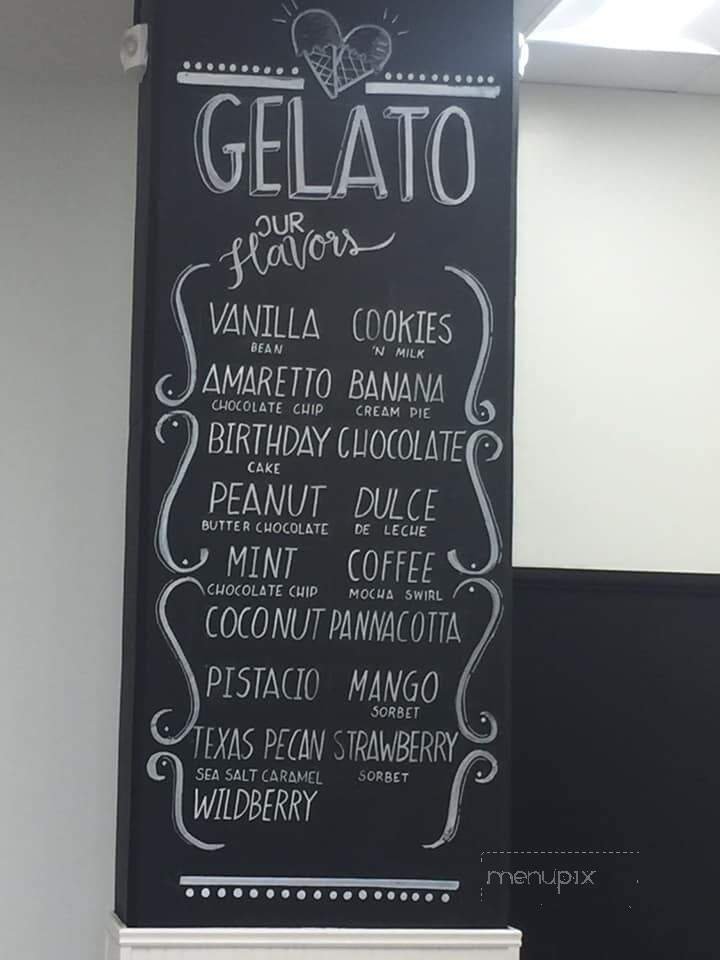 GELATO
OUR
Flavors
VANILLA COOKIES
BEAN 'N MILK
AMARETTO BANANA
CHOCOLATE CHIP CREAM PIE
BIRTHDAY CHOCOLATE
CAKE
PEANUT DULCE
BUTTER CHOCOLATE DE LECHE
MINT COFFEE
CHOCOLATE CHIP MOCHA SWIRL
COCONUT PANNACOTTA
PISTACIO MANGO
SORBET
TEXAS PECAN STRAWBERRY
SEA SALT CARAMEL SORBET
WILDBERRY
menupix